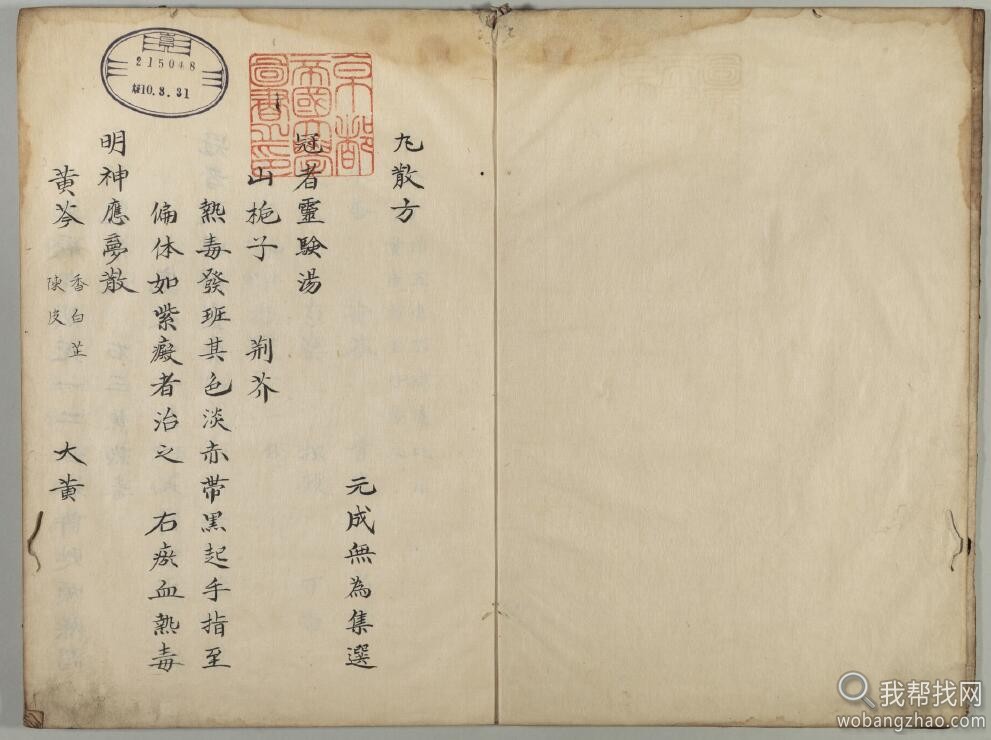 丸散方
元成無為集選
冠者靈驗湯
山梔子 荊芥
熱毒發班其色淡赤帶黑起手指至
偏体如紫癜者治之 右瘀血熱毒
明神應夢散
黃芩 香白芷 陳皮 大黃
京都
帝國大學
圖書之印
215048
昭10.8.31
我帮找网
wobangzhao.com